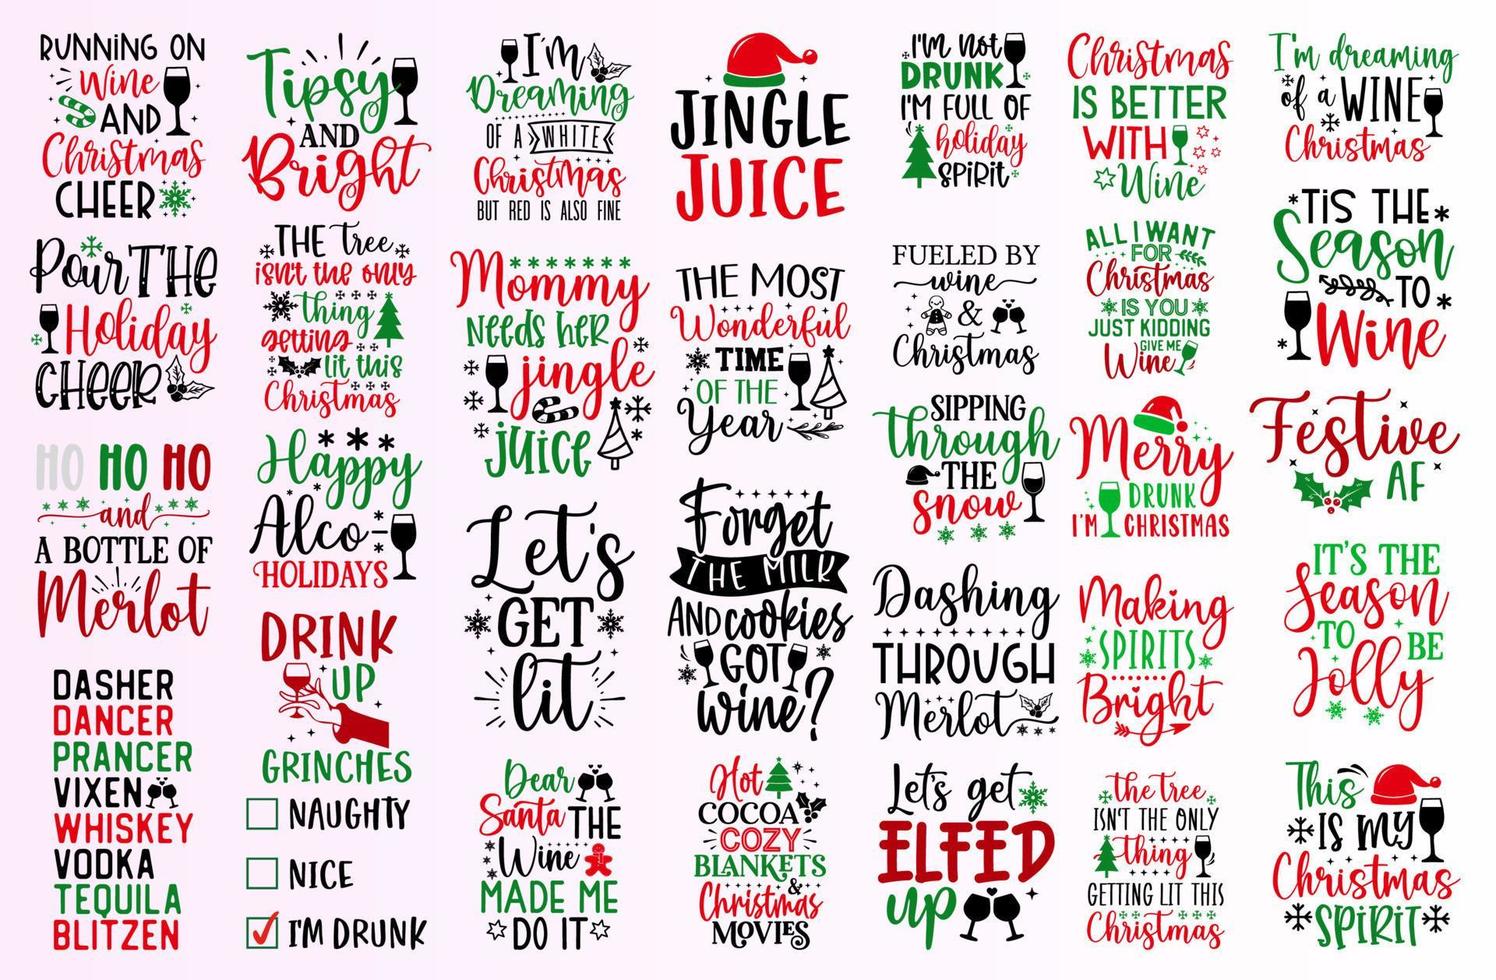 RUNNING ON
Wine
AND
Christmas
CHEER
Pour THE
Holiday
CHEER
HO HO HO
and
A BOTTLE OF
Merlot
DASHER
DANCER
PRANCER
VIXEN
WHISKEY
VODKA
TEQUILA
BLITZEN
Tipsy
AND
Bright
THE tree
isn't the only
thing
getting
lit this
Christmas
Happy
Alco-
HOLIDAYS
DRINK
UP
GRINCHES
NAUGHTY
NICE
I'M DRUNK
I'm
Dreaming
OF A WHITE
Christmas
BUT RED IS ALSO FINE
Mommy
NEEDS HER
jingle
juice
Let's
GET
lit
Dear
Santa THE
Wine
MADE ME
DO IT
JINGLE
JUICE
THE MOST
Wonderful
TIME
OF THE
Year
Forget
THE MILK
AND cookies
GOT
wine?
Hot
COCOA
COZY
BLANKETS
&
Christmas
MOVIES
I'M not
DRUNK
I'M FULL OF
holiday
SPIRIT
FUELED BY
wine
&
Christmas
SIPPING
through
THE
snow
Dashing
THROUGH
Merlot
Let's get
ELFED
up
Christmas
IS BETTER
WITH
Wine
ALL I WANT
FOR
Christmas
IS YOU
JUST KIDDING
GIVE ME
Wine
Merry
DRUNK
I'M CHRISTMAS
Making
SPIRITS
Bright
the tree
ISN'T THE ONLY
thing
GETTING LIT THIS
Christmas
I'm dreaming
of a WINE
Christmas
TIS THE
Season
TO
Wine
Festive
AF
IT'S THE
Season
TO BE
Jolly
This
IS MY
Christmas
SPIRIT